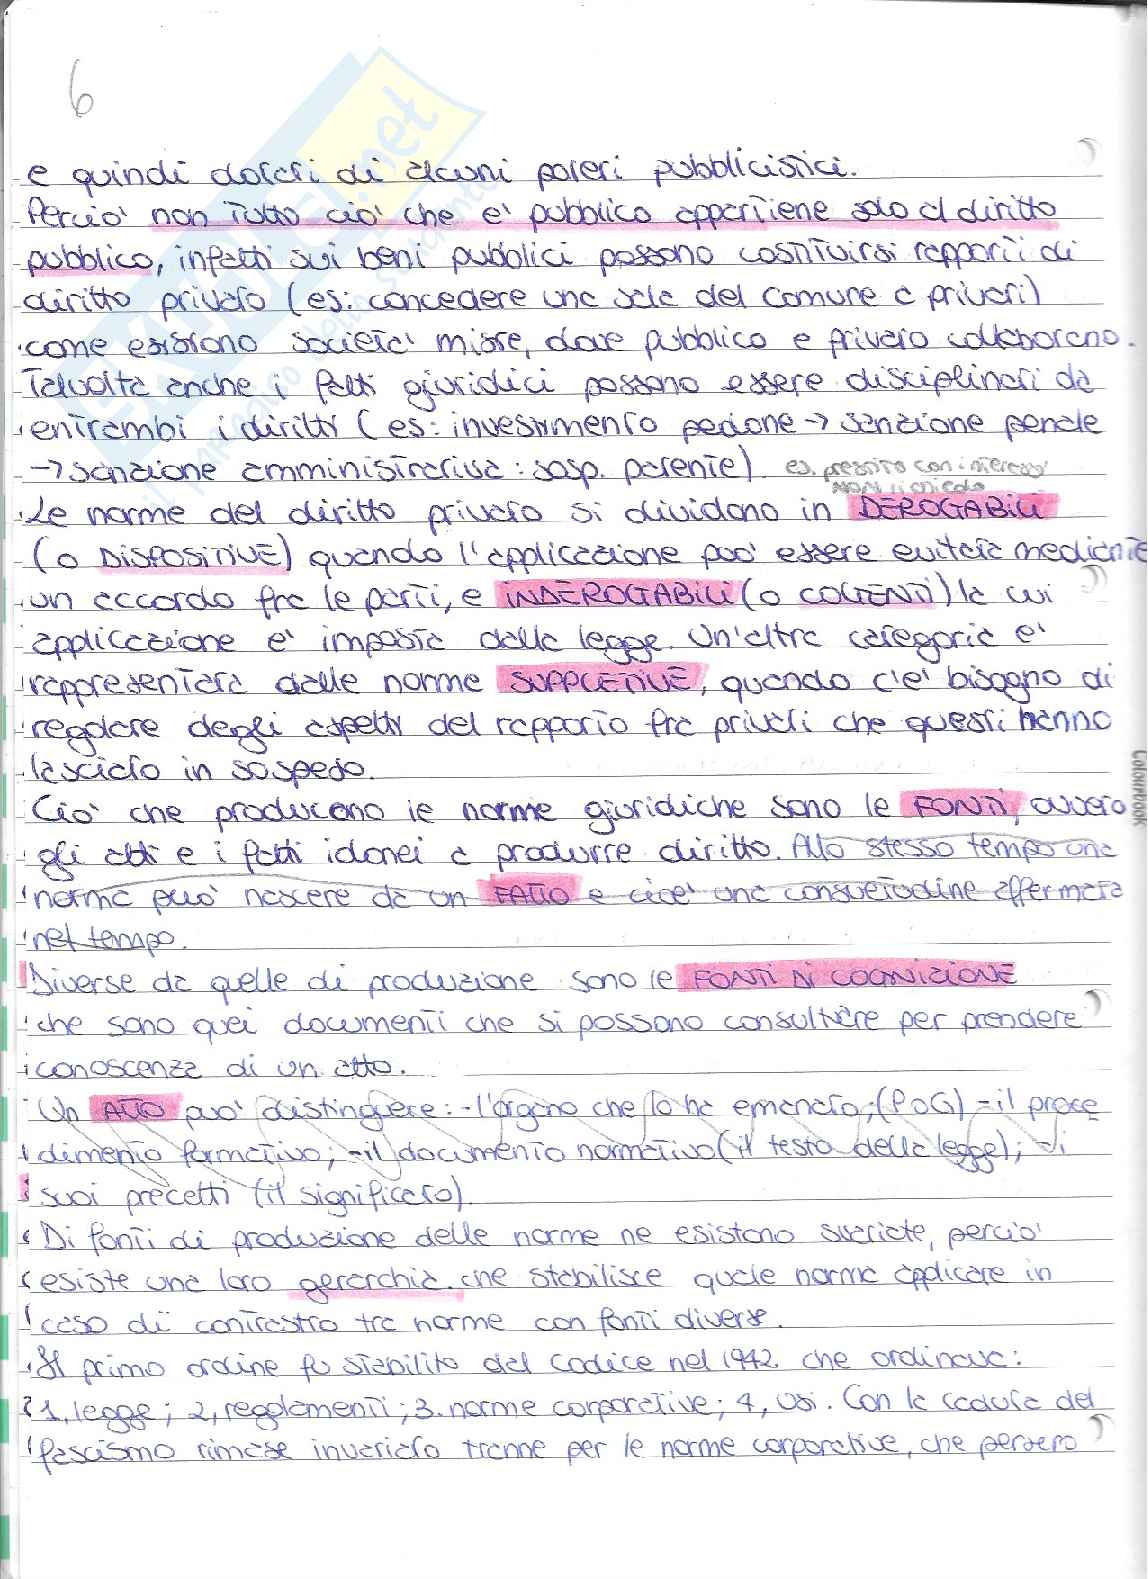 6
e quindi dotati di alcuni poteri pubblicistici.
Perciò non tutto ciò che è pubblico appartiene solo al diritto
pubblico, infatti sui beni pubblici possono costituirsi rapporti di
diritto privato (es: concedere una sala del comune a privati)
come esistono società miste, dove pubblico e privato collaborano.
Talvolta anche i fatti giuridici possono essere disciplinati da
entrambi i diritti (es: investimento pedone → sanzione penale
→ sanzione amministrativa: sosp. patente) es. prestito con interessi
non li chiedo
Le norme del diritto privato si dividono in DEROGABILI
(o DISPOSITIVE) quando l'applicazione può essere evitata mediante
un accordo fra le parti, e INDEROGABILI (o COGENTI) la cui
applicazione è imposta dalla legge. Un'altra categoria è
rappresentata dalle norme SUPPLETIVE, quando c'è bisogno di
regolare degli aspetti del rapporto fra privati che questi hanno
lasciato in sospeso.
Ciò che producono le norme giuridiche sono le FONTI, ovvero
gli atti e i fatti idonei a produrre diritto. Allo stesso tempo una
norma può nascere da un FATTO e cioè una consuetudine affermata
nel tempo.
Diverse da quelle di produzione sono le FONTI DI COGNIZIONE
che sono quei documenti che si possono consultare per prendere
conoscenza di un atto.
Un ATTO può distinguere: - l'organo che lo ha emanato; (POG) - il proce
dimento formativo; - il documento normativo (il testo della legge); - i
suoi precetti (il significato).
Di fonti di produzione delle norme ne esistono svariate, perciò
esiste una loro gerarchia che stabilisce quale norma applicare in
caso di contrasto tra norme con fonti diverse.
Il primo ordine fu stabilito dal codice nel 1942 che ordinava:
1, legge; 2, regolamenti; 3. norme corporative; 4, usi. Con la caduta del
fascismo rimase invariato tranne per le norme corporative, che persero
Colourbook